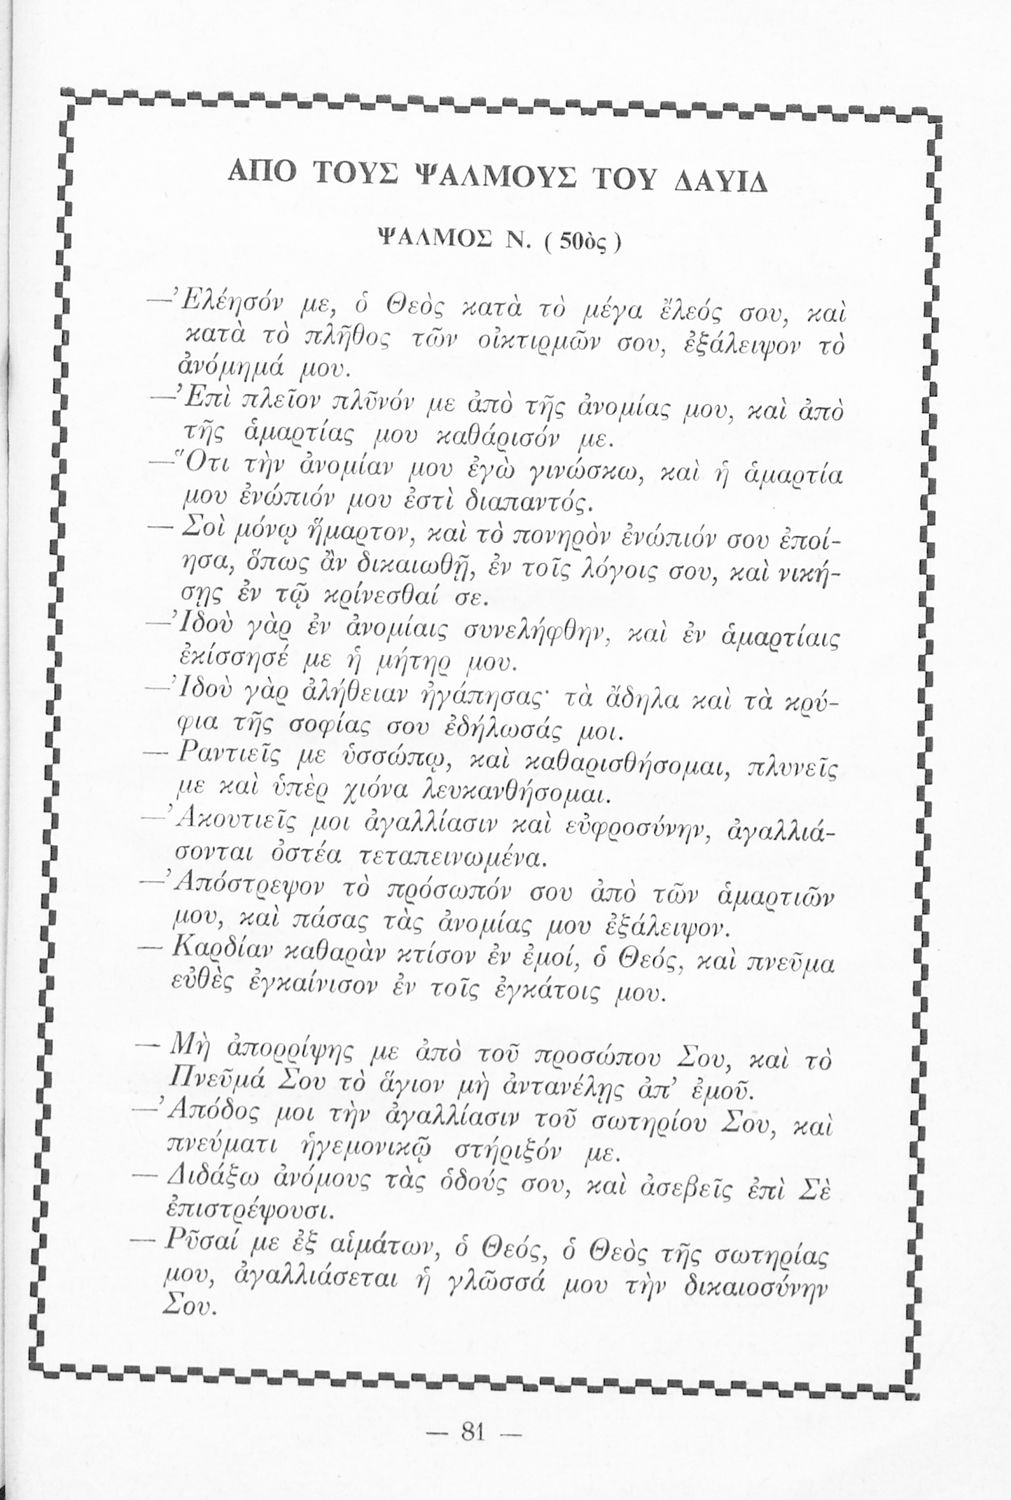 ΑΠΟ ΤΟΥΣ ΨΑΛΜΟΥΣ ΤΟΥ ΔΑΥΙΔ
ΨΑΛΜΟΣ Ν. ( 50ὸς )
—Ἐλέησόν με, ὁ Θεὸς κατὰ τὸ μέγα ἔλεός σου, καὶ
κατὰ τὸ πλῆθος τῶν οἰκτιρμῶν σου, ἐξάλειψον τὸ
ἀνόμημά μου.
—Ἐπὶ πλεῖον πλῦνόν με ἀπὸ τῆς ἀνομίας μου, καὶ ἀπὸ
τῆς ἁμαρτίας μου καθάρισόν με.
—Ὅτι τὴν ἀνομίαν μου ἐγὼ γινώσκω, καὶ ἡ ἁμαρτία
μου ἐνώπιόν μου ἐστὶ διαπαντός.
— Σοὶ μόνῳ ἥμαρτον, καὶ τὸ πονηρὸν ἐνώπιόν σου ἐποί-
ησα, ὅπως ἂν δικαιωθῇ, ἐν τοῖς λόγοις σου, καὶ νική-
σῃς ἐν τῷ κρίνεσθαί σε.
—Ἰδοὺ γὰρ ἐν ἀνομίαις συνελήφθην, καὶ ἐν ἁμαρτίαις
ἐκίσσησέ με ἡ μήτηρ μου.
—Ἰδοὺ γὰρ ἀλήθειαν ἠγάπησας· τὰ ἄδηλα καὶ τὰ κρύ-
φια τῆς σοφίας σου ἐδήλωσάς μοι.
— Ραντιεῖς με ὑσσώπῳ, καὶ καθαρισθήσομαι, πλυνεῖς
με καὶ ὑπὲρ χιόνα λευκανθήσομαι.
—Ἀκουτιεῖς μοι ἀγαλλίασιν καὶ εὐφροσύνην, ἀγαλλιά-
σονται ὀστέα τεταπεινωμένα.
—Ἀπόστρεψον τὸ πρόσωπόν σου ἀπὸ τῶν ἁμαρτιῶν
μου, καὶ πάσας τὰς ἀνομίας μου ἐξάλειψον.
— Καρδίαν καθαρὰν κτίσον ἐν ἐμοί, ὁ Θεός, καὶ πνεῦμα
εὐθὲς ἐγκαίνισον ἐν τοῖς ἐγκάτοις μου.
— Μὴ ἀπορρίψης με ἀπὸ τοῦ προσώπου Σου, καὶ τὸ
Πνεῦμά Σου τὸ ἅγιον μὴ ἀντανέλῃς ἀπ’ ἐμοῦ.
—Ἀπόδος μοι τὴν ἀγαλλίασιν τοῦ σωτηρίου Σου, καὶ
πνεύματι ἡγεμονικῷ στήριξόν με.
— Διδάξω ἀνόμους τὰς ὁδούς σου, καὶ ἀσεβεῖς ἐπὶ Σὲ
ἐπιστρέψουσι.
— Ρῦσαί με ἐξ αἱμάτων, ὁ Θεός, ὁ Θεὸς τῆς σωτηρίας
μου, ἀγαλλιάσεται ἡ γλῶσσά μου τὴν δικαιοσύνην
Σου.
— 81 —